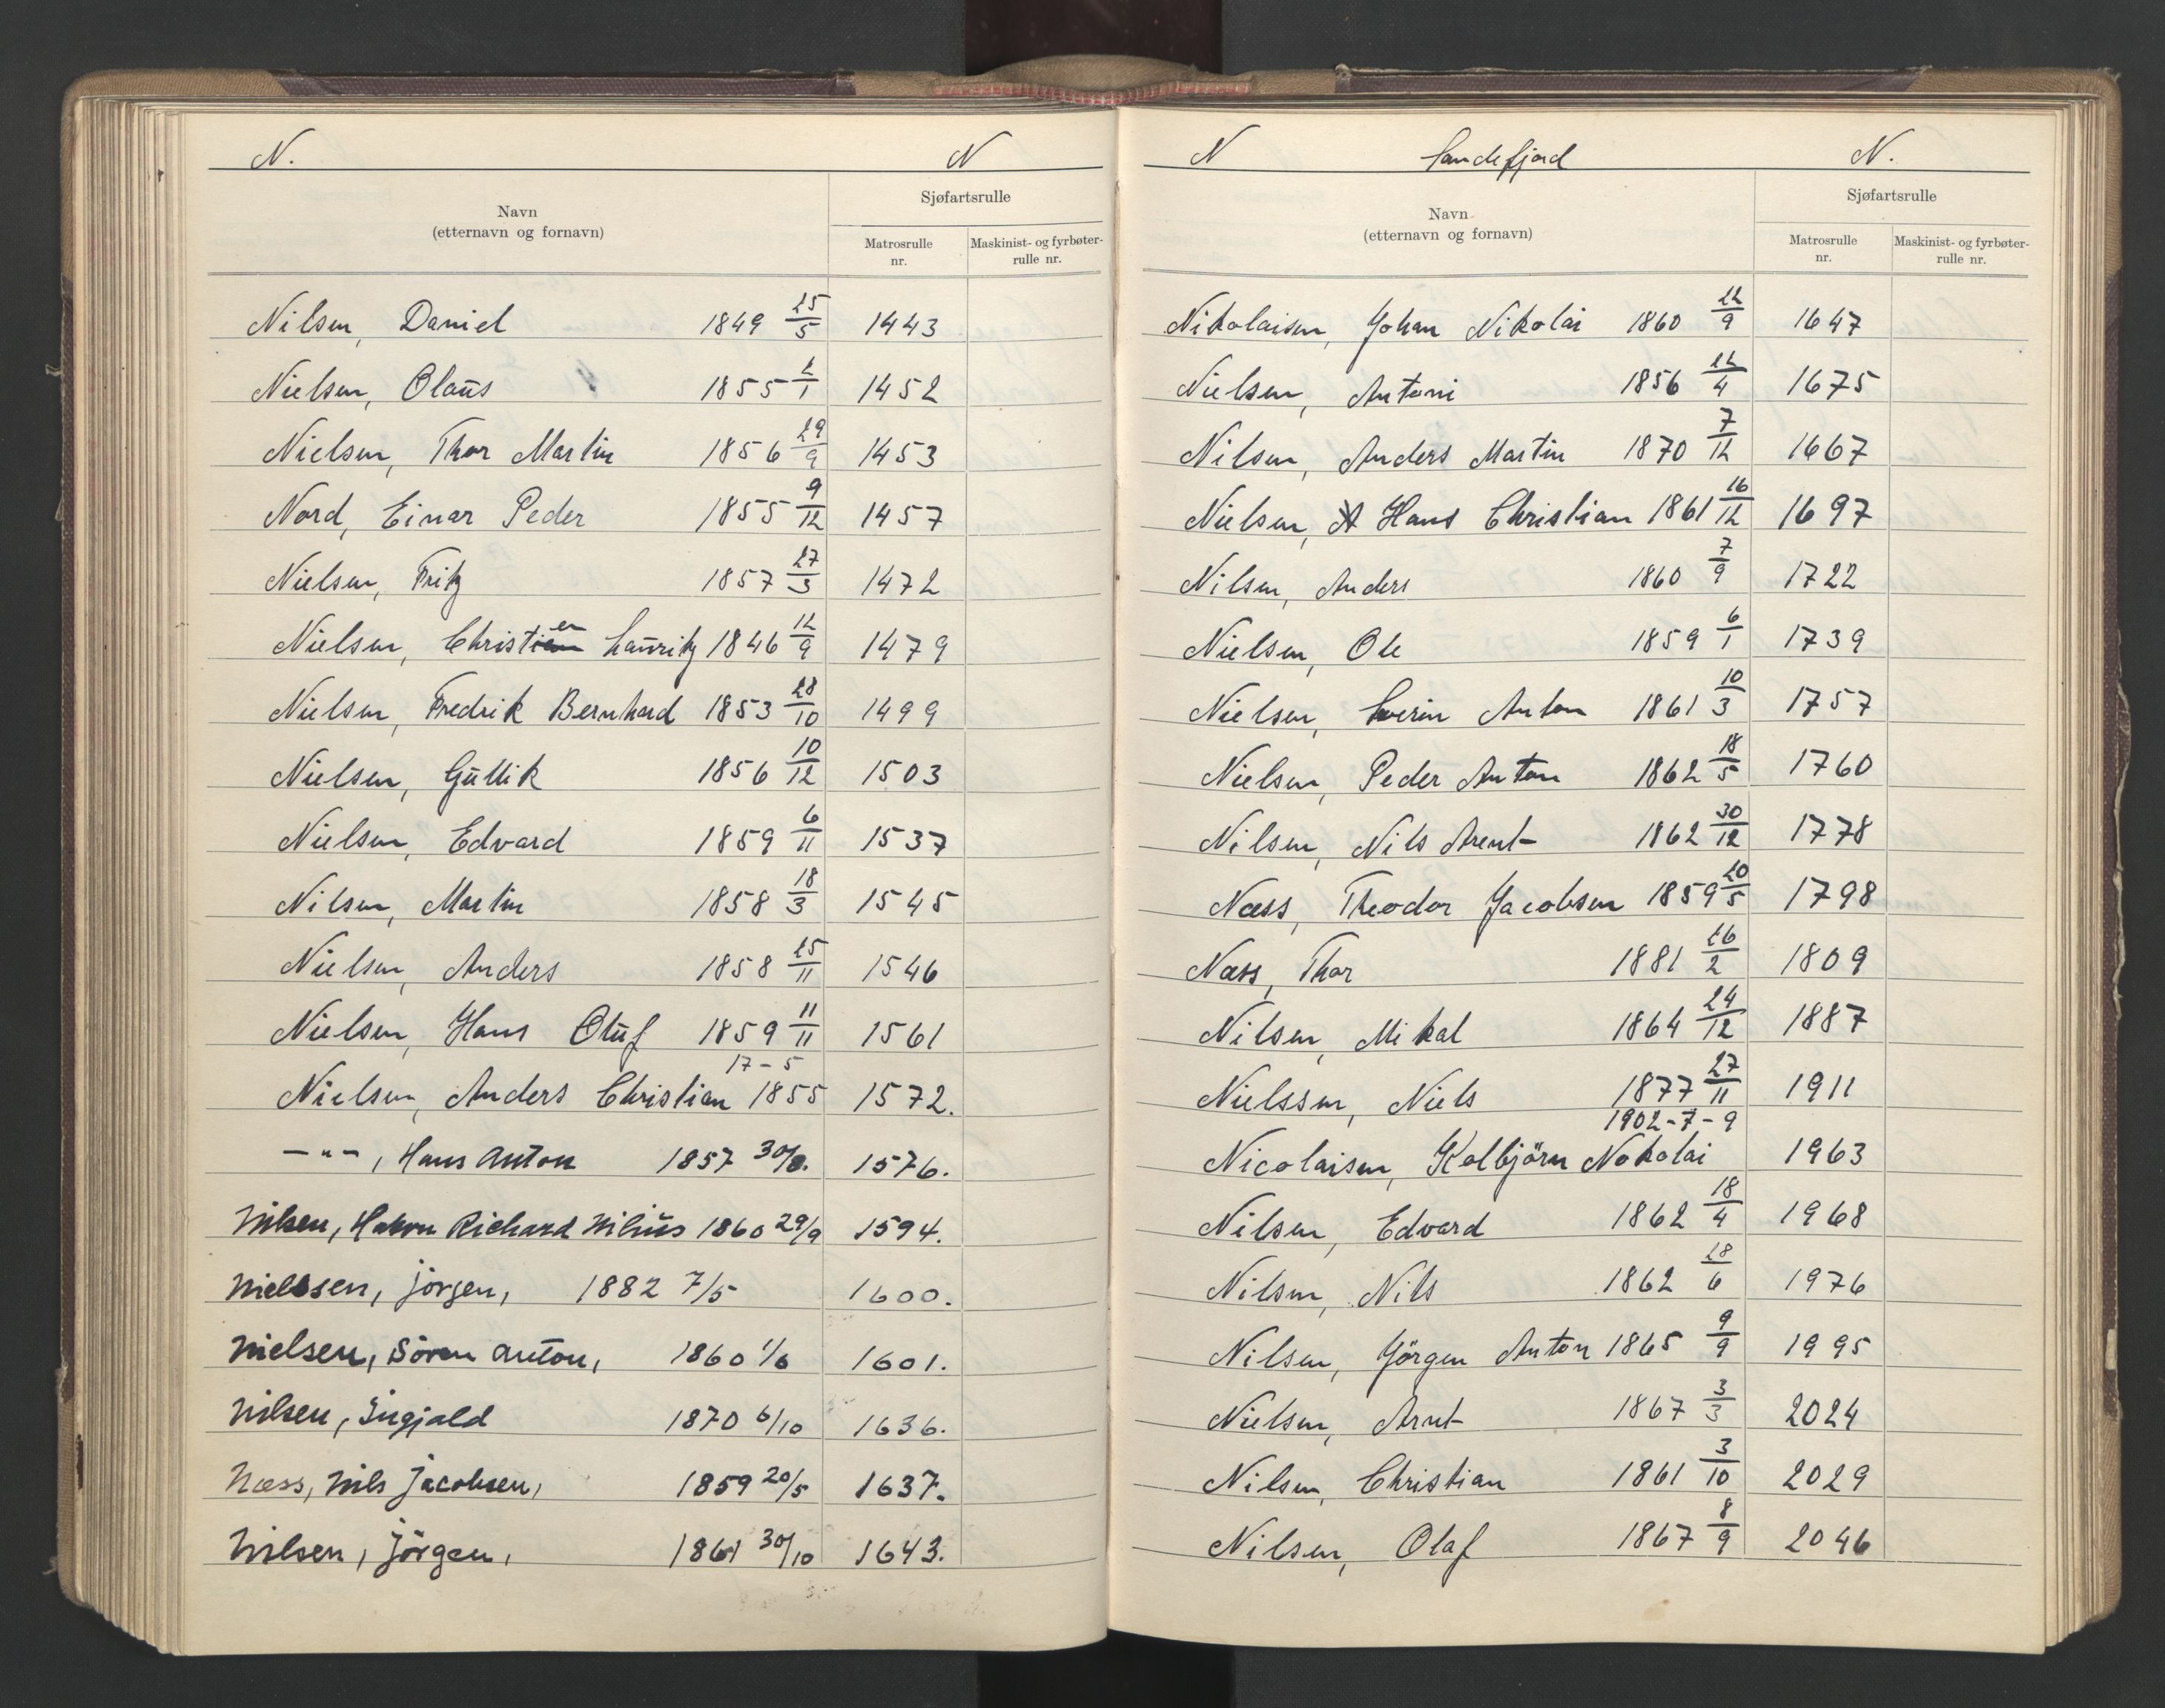 N. N
Navn
(etternavn og fornavn)
Sjøfartsrulle
Matrosrulle nr.
Maskinist- og fyrbøter-rulle nr.
Nilsen, Daniel 1849 25/5 1443
Nielsen, Olaus 1855 2/1 1452
Nielsen, Thor Martin 1856 29/9 1453
Nord, Einar Peder 1855 9/12 1457
Nielsen, Fritz 1857 27/3 1472
Nielsen, Christen Lauritz 1846 12/9 1479
Nielsen, Fredrik Bernhard 1853 28/10 1499
Nielsen, Gullik 1856 10/12 1503
Nielsen, Edvard 1859 6/11 1537
Nilsen, Martin 1858 18/3 1545
Nielsen, Anders 1858 25/11 1546
Nielsen, Hans Oluf 1859 11/11 1561
Nielsen, Anders Christian 17-5 1855 1572.
-"-, Hans Anton 1857 1576.
Nilsen, Hakon Richard Nilius 1860 29/9 1594.
Nielsen, Jörgen, 1882 7/5 1600.
Nielsen, Sören Anton, 1860 1/6 1601.
Nilsen, Ingjald 1870 6/10 1636.
Næss, Nils Jacobsen, 1859 20/5 1637.
Nilsen, Jörgen, 1861 30/10 1643.
N Sandefjord N.
Navn
(etternavn og fornavn)
Sjøfartsrulle
Matrosrulle nr.
Maskinist- og fyrbøter-rulle nr.
Nikolaisen, Johan Nikolai 1860 22/9 1647
Nielsen, Antoni 1856 22/4 1675
Nilsen, Anders Martin 1870 7/12 1667
Nielsen, Hans Christian 1861 16/12 1697
Nilsen, Anders 1860 7/9 1722
Nielsen, Ole 1859 6/1 1739
Nielsen, Sverin Anton 1861 10/3 1757
Nielsen, Peder Anton 1862 18/5 1760
Nilsen, Nils Arent 1862 30/12 1778
Næss, Theodor Jacobsen 1859 20/5 1798
Næss, Thor 1881 26/2 1809
Nilsen, Mikal 1864 24/12 1887
Nielssen, Niels 1877 27/11 1911
Nicolaisen, Kolbjörn Nokolai 1902-7-9 1963
Nilsen, Edvard 1862 18/4 1968
Nilsen, Nils 1862 28/6 1976
Nilsen, Jörgen Anton 1865 9/9 1995
Nielsen, Arnt 1867 3/3 2024
Nilsen, Christian 1861 3/10 2029
Nilsen, Olaf 1867 8/9 2046